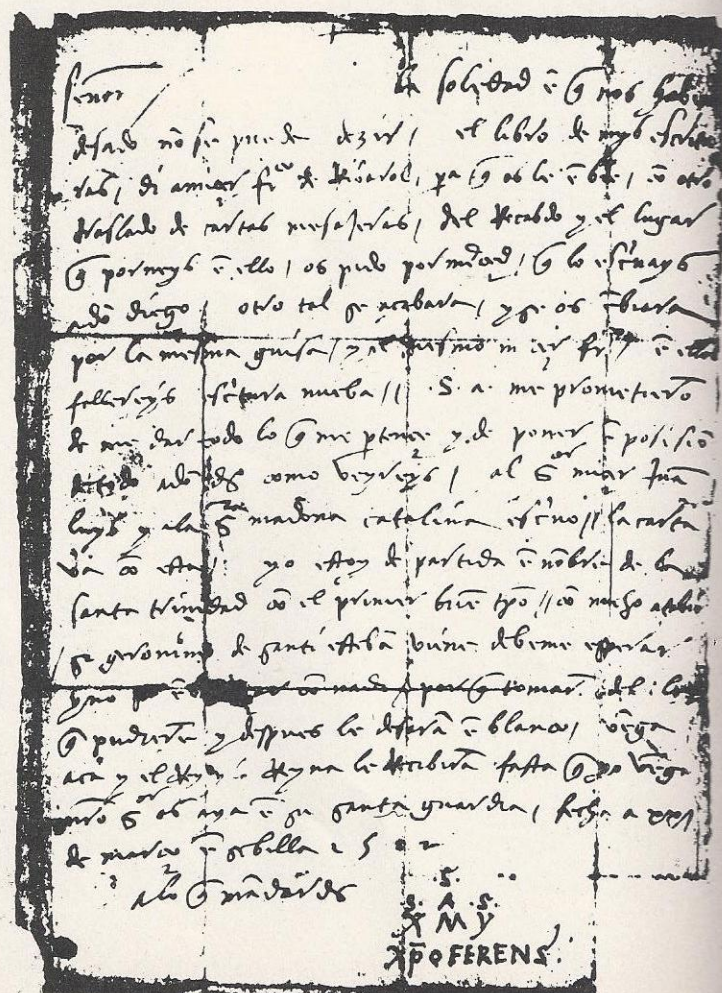 señor / la soledad ē q̄ nos habeis
desado nō se puede dezir / el libro de mys escritu
ras / di a miçer frco de Ribarol / pa q̄ os le ēbíe / cō otro
traslado de cartas mesajeras / del Recabdo y el lugar
q̄ porneys ē ello / os pido por md / q̄ lo escriuays
a dō diego / otro tal se acabara / y se os ēbiara
por la mesma guisa / y el mesmo miçer frco ē ello
fallereys escritura nueba // .S. a. me prometierō
de me dar todo lo q̄ me pertenece y de poner ē posesiō
de todo a dō dº como veyreys / al Sor miçer Juā
luys y a la Sra madona catalina escrivo // la carta
va cō esta / yo estoy de partida ē nōbre de la
santa trinidad cō el primer buē tpō // cō mucho atabio
si geronimo de santi estebā viene debeme esperar
y no con nada porq̄ tomarā del lo
q̄ pudierē y despues le desarā ē blanco / vēga
acá y el Rey y la Reyna le Recibirā fasta q̄ yo vēga
nrō Sor os aya ē su santa guardia / fecha a xxi
de março ē sebilla 1502
a lo q̄ mādardes
.S.
.S. A .S.
X M Y
Xp̄oFERENS.